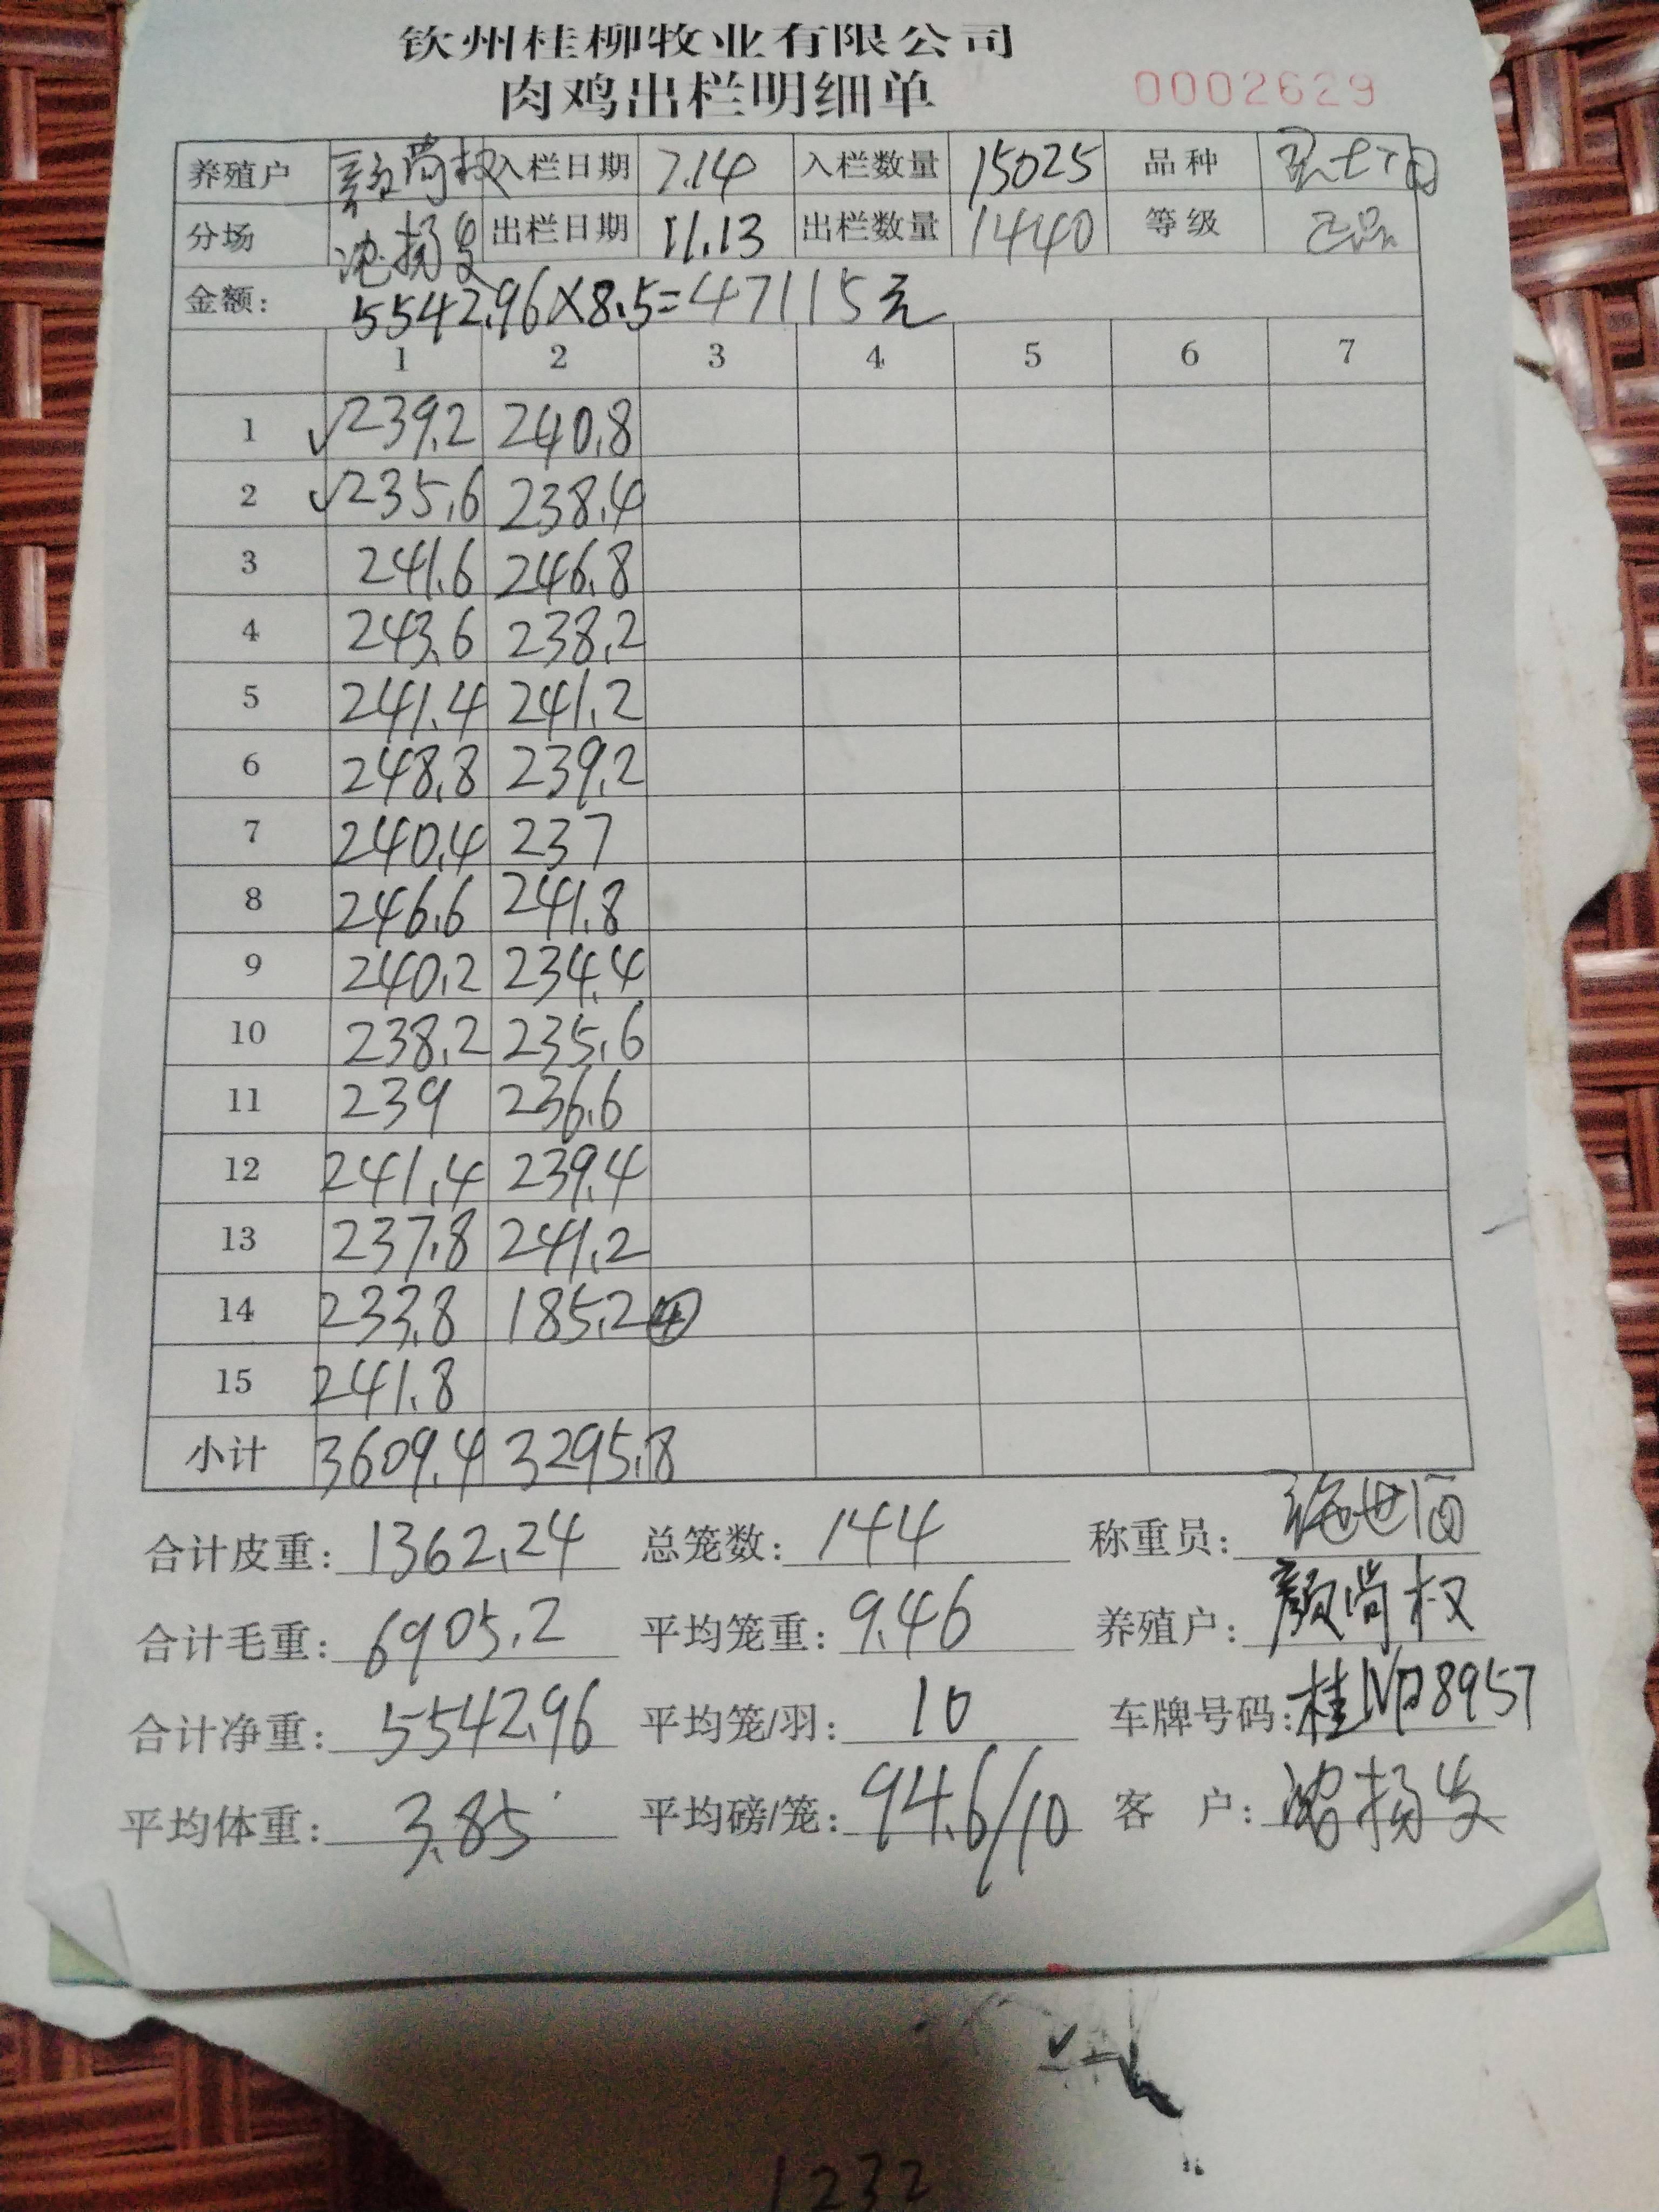 钦州桂柳牧业有限公司
肉鸡出栏明细单 0002629
养殖户 颜尚权 入栏日期 7.14 入栏数量 15025 品种
分场 出栏日期 11.13 出栏数量 1440 等级 正品
金额: 5542.96×8.5=47115元
1 2 3 4 5 6 7
1 √239.2 240.8
2 √235.6 238.4
3 241.6 246.8
4 243.6 238.2
5 241.4 241.2
6 248.8 239.2
7 240.4 237
8 246.6 241.8
9 240.2 234.4
10 238.2 235.6
11 239 236.6
12 241.4 239.4
13 237.8 241.2
14 233.8 185.2 ④
15 241.8
小计 3609.4 3295.8
合计皮重: 1362.24 总笼数: 144 称重员:
合计毛重: 6905.2 平均笼重: 9.46 养殖户: 颜尚权
合计净重: 5542.96 平均笼/羽: 10 车牌号码: 桂
平均体重: 3.85 平均磅/笼: 94.6/10 客 户:
1232